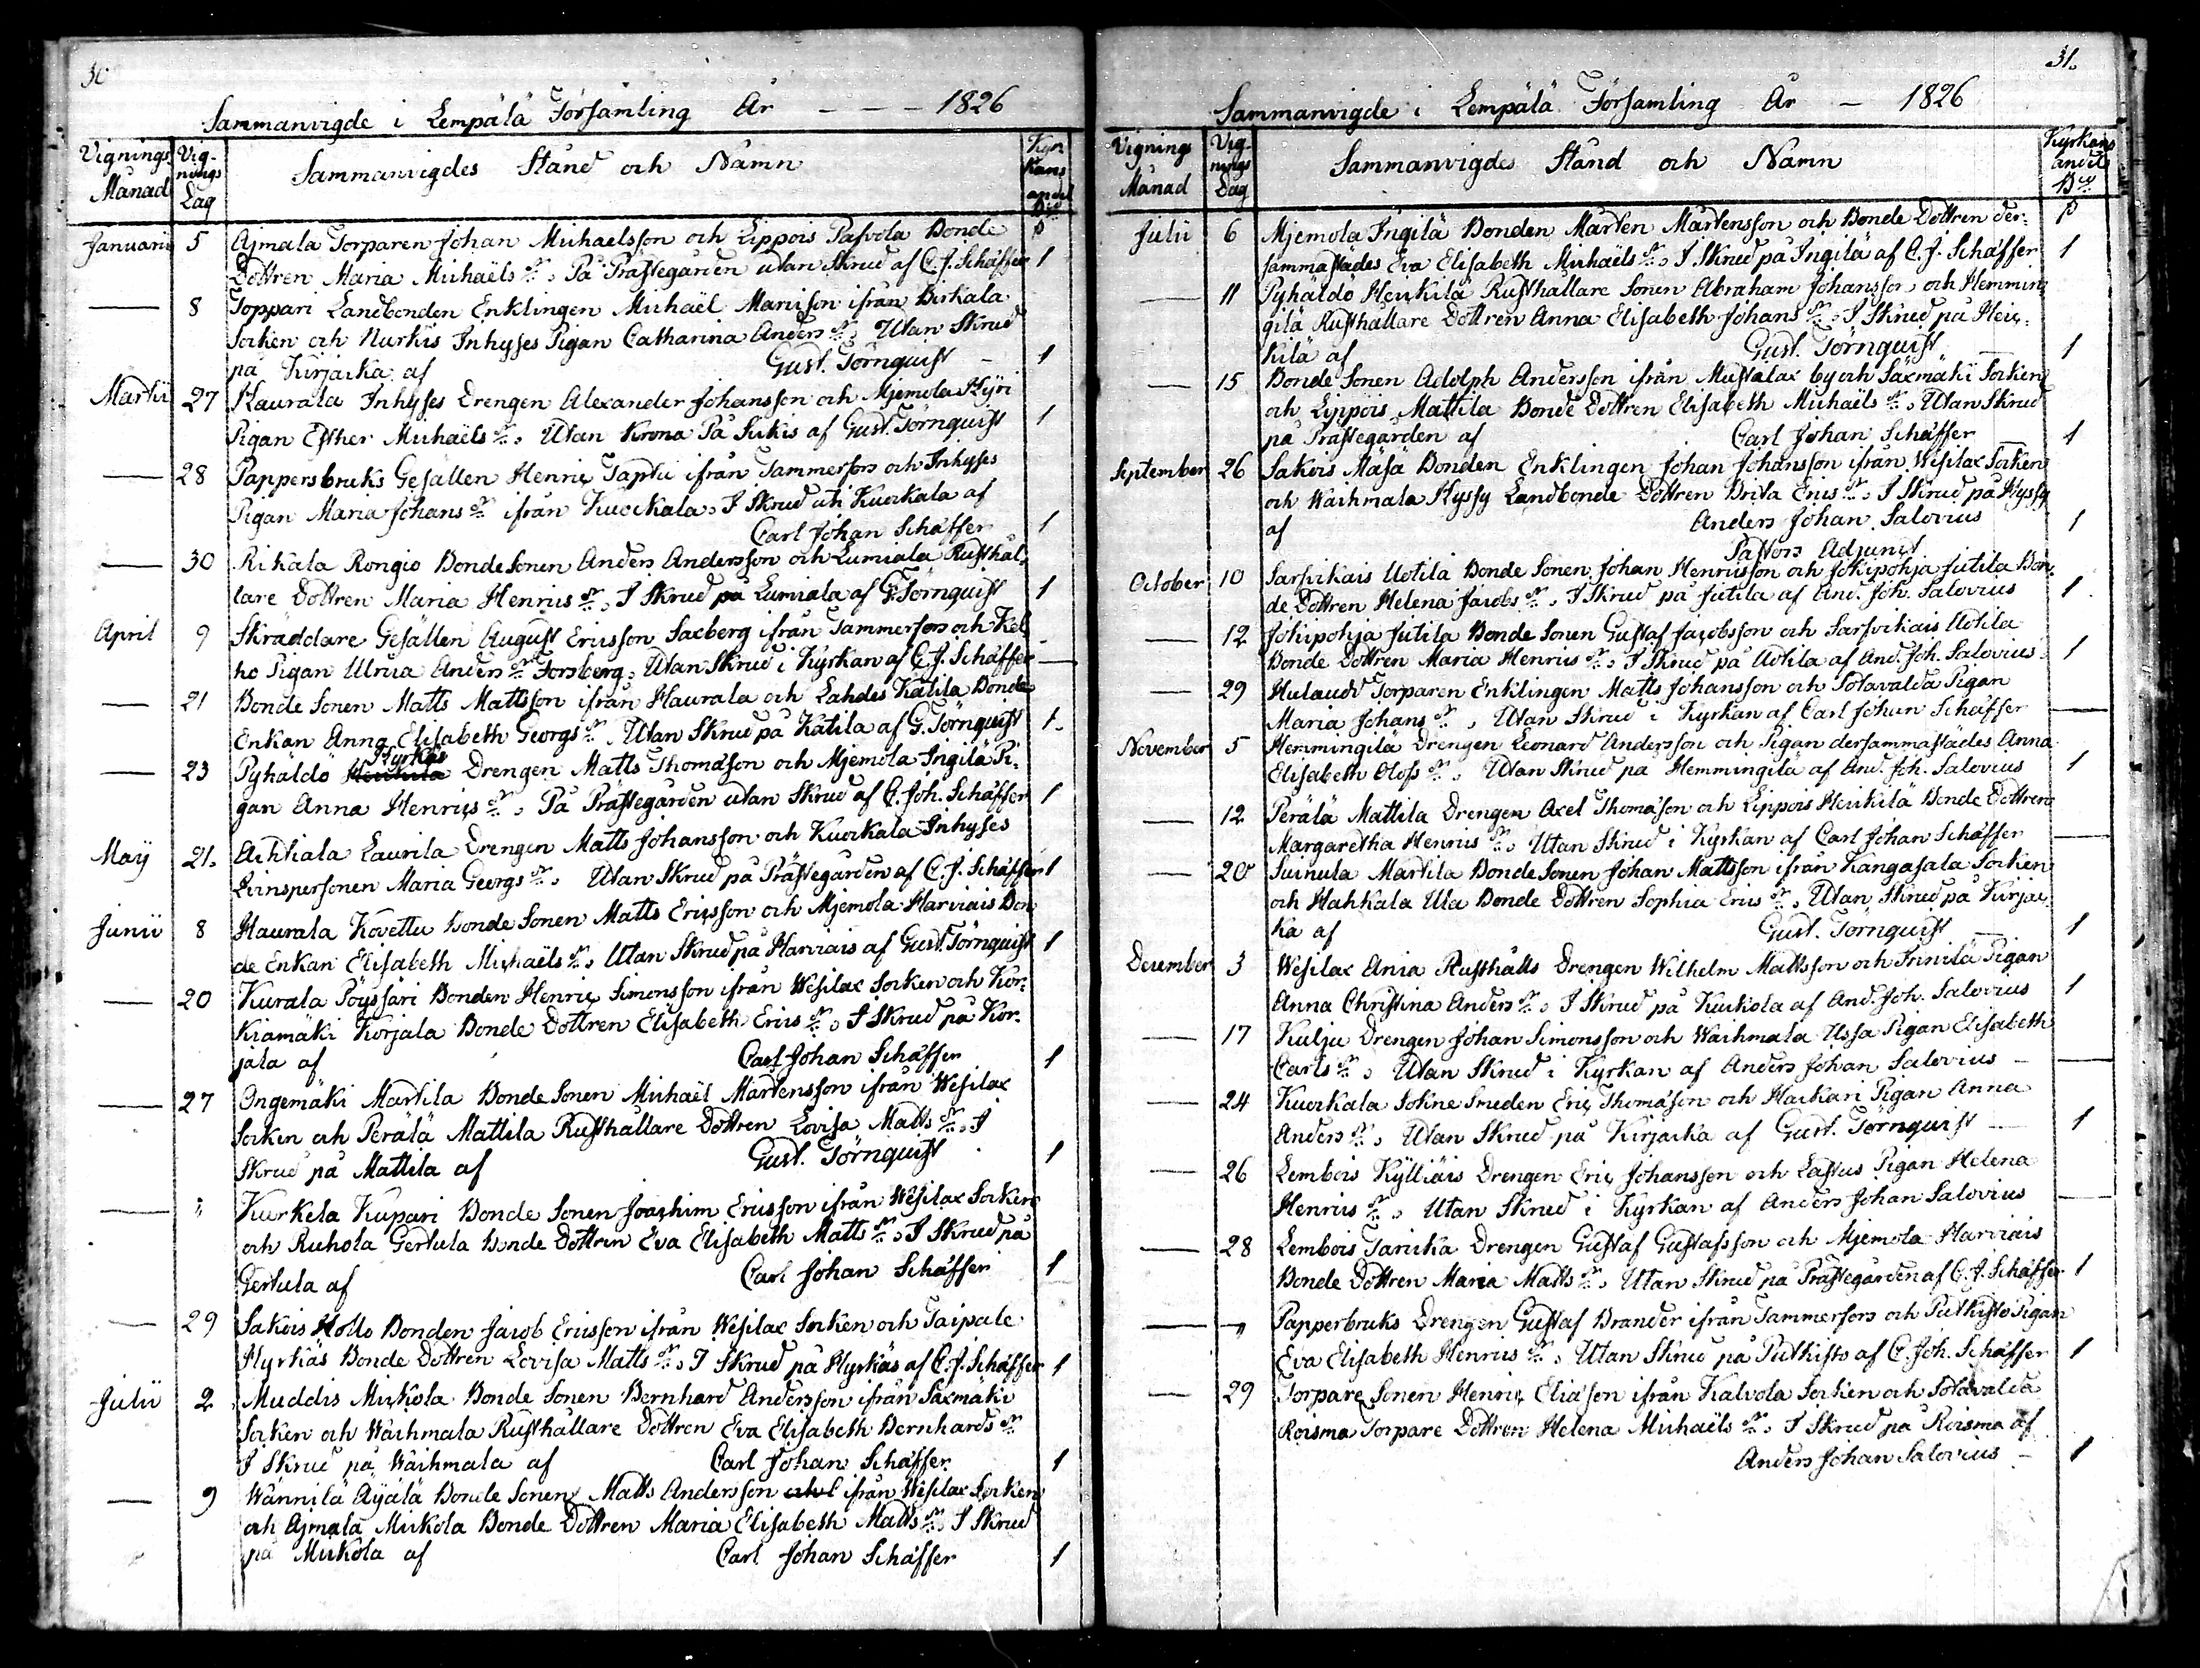 30
Sammanvigde i Lempälä Församling År — — — 1826
Vignings Månad
Vignings Dag
Sammanvigdes Stånd och Namn
Kyrkans andel
Januarii 5 Ajmala Torparen Johan Michaelsson och Lippois Pasvola Bonde
Dottren Maria Michaëls dr. På Prästegården utan Skrud af C. J. Schäffer 1
— 8 Toppari Landbonden Enklingen Michaël Mariison ifrån Birkala
Socken och Nurkis Inhyses Pigan Catharina Anders dr. Utan Skrud
på Kirjacka af Gust. Törnquist — 1
Martii 27 Haurala Inhyses Drengen Alexander Johansson och Mjemola Hÿri
Pigan Esther Michaëls dr. Utan Krona På Sukis af Gust. Törnquist 1
— 28 Pappersbruks Gesällen Henric Taptu ifrån Tammerfors och Inhyses
Pigan Maria Johans dr. ifrån Kuockala. I Skrud uti Kuockala af
Carl Johan Schäffer 1
— 30 Rikala Rongio Bonde Sonen Anders Andersson och Lumiala Rusthål,
lare Dottren Maria Henrics dr. I Skrud på Lumiala af G. Törnquist 1
April 9 Skräddare Gesällen August Ericsson Saxberg ifrån Tammerfors och Kel
ho Pigan Ulrica Anders dr. Forsberg. Utan Skrud i Kyrkan af C. J. Schäffer —
— 21 Bonde Sonen Matts Mattsson ifrån Haurala och Lahdes Katila Bonde
Enkan Anna Elisabeth Georgs dr. Utan Skrud på Katila af G. Törnquist 1.
Hyrkäs
— 23 Pyhäldö Heickilä Drengen Matts Thomasson och Mjemola Ingilä Pi-
gan Anna Henrics dr. På Prästegården utan Skrud af C. Joh. Schäffer 1
Maÿ 21. Achtiala Laurila Drengen Matts Johansson och Kuockala Inhyses
Qvinspersonen Maria Georgs dr. Utan Skrud på Prästegården af C. J. Schäffer 1
Junii 8 Haurala Kovettu Bonde Sonen Matts Ericsson och Mjemola Harviais Bon
de Enkan Elisabeth Michaëls dr. Utan Skrud på Harviais af Gust. Törnquist 1
— 20 Kurala Pöyssäri Bonden Henric Simonsson ifrån Wesilax Socken och Kor-
kiamäki Korjala Bonde Dottren Elisabeth Erics dr. I Skrud på Kor-
jala af Carl Johan Schäffer 1
— 27 Ongemäki Martila Bonde Sonen Michaël Mårtensson ifrån Wesilax
Socken och Perälä Mattila Rusthållare Dottren Lovisa Matts dr. I
Skrud på Mattila af Gust. Törnquist 1
— " Kurkela Kupari Bonde Sonen Joachim Ericsson ifrån Wesilax Socken
och Ruhola Gertula Bonde Dottren Eva Elisabeth Matts dr. I Skrud på
Gertula af Carl Johan Schäffer 1
— 29 Sakois Hollo Bonden Jacob Ericsson ifrån Wesilax Socken och Taipale
Hyrkäs Bonde Dottren Lovisa Matts dr. I Skrud på Hyrkäs af C. J. Schäffer 1
Julii 2 Muddis Mickola Bonde Sonen Bernhard Andersson ifrån Säxmäki
Socken och Waihmala Rusthållare Dottren Eva Elisabeth Bernhards dr.
I Skrud på Waihmala af Carl Johan Schäffer 1
— 9 Wännilä Äyälä Bonde Sonen Matts Andersson och ifrån Wesilax Socken
och Ajmala Mickola Bonde Dottren Maria Elisabeth Matts dr. I Skrud
på Mickola af Carl Johan Schäffer 1
31.
Sammanvigde i Lempälä Församling År — 1826
Vignings Månad
Vignings Dag
Sammanvigdes Stånd och Namn
Kyrkans andel
Julii 6 Mjemola Ingilä Bonden Mårten Mårtensson och Bonde Dottren der-
sammastades Eva Elisabeth Michaëls dr. I Skrud på Ingilä af C. J. Schäffer 1
— 11 Pyhäldö Heickilä Rusthållare Sonen Abraham Johansson och Hemmin-
gilä Rusthållare Dottren Anna Elisabeth Johans dr. I Skrud på Heic-
kilä af Gust. Törnquist 1
— 15 Bonde Sonen Adolph Andersson ifrån Mustalax by och Säxmäki Socken
och Lippois Mattila Bonde Dottren Elisabeth Michaëls dr. Utan Skrud
på Prästegården af Carl Johan Schäffer — 1
September 26 Sakois Mäsä Bonden Enklingen Johan Johansson ifrån Wesilax Socken
och Waihmala Hyssy Landbonde Dottren Brita Erics dr. I Skrud på Hyssy
af Anders Johan Salovius 1
Pastors Adjunct
October 10 Sarsvikais Uotila Bonde Sonen Johan Henricsson och Jokipohja Jutila Bon-
de Dottren Helena Jacobs dr. I Skrud på Jutila af And. Joh. Salovius 1
— 12 Jokipohja Jutila Bonde Sonen Gustaf Jacobsson och Sarsvikais Uotila
Bonde Dottren Maria Henrics dr. I Skrud på Uotila af And. Joh. Salovius 1
— 29 Hulaudt Torparen Enklingen Matts Johansson och Sotavalda Pigan
Maria Johans dr. Utan Skrud i Kyrkan af Carl Johan Schäffer —
November 5 Hemmingilä Drengen Leonard Andersson och Pigan dersammastädes Anna
Elisabeth Olofs dr. Utan Skrud på Hemmingilä af And. Joh. Salovius 1
— 12 Perälä Mattila Drengen Axel Thomasson och Lippois Heickilä Bonde Dottren
Margaretha Henrics dr. Utan Skrud i Kyrkan af Carl Johan Schäffer —
— 20 Suinula Martila Bonde Sonen Johan Mattsson ifrån Kangasala Socken
och Hahkala Ula Bonde Dottren Sophia Erics dr. Utan Skrud på Kirjac-
ka af Gust. Törnquist — 1
December 3 Wesilax Ania Rusthålls Drengen Wilhelm Mattsson och Frinilä Pigan
Anna Christina Anders dr. I Skrud på Kuckola af And. Joh. Salovius 1
— 17 Kulju Drengen Johan Simonsson och Waihmala Ussa Pigan Elisabeth
Carls dr. Utan Skrud i Kyrkan af Anders Johan Salovius — —
— 24 Kuockala Sokne Smeden Eric Thomasson och Hackari Pigan Anna
Anders dr. Utan Skrud på Kirjacka af Gust. Törnquist — 1
— 26 Lembois Kylliäis Drengen Eric Johansson och Lastus Pigan Helena
Henrics dr. Utan Skrud i Kyrkan af Anders Johan Salovius —
— 28 Lembois Tanicka Drengen Gustaf Gustafsson och Mjemola Harviais
Bonde Dottren Maria Matts dr. Utan Skrud på Prästegården af C. J. Schäffer 1
— " Papperbruks Drengen Gustaf Brander ifrån Tammerfors och Putkisto Pigan
Eva Elisabeth Henrics dr. Utan Skrud på Putkisto af C. Joh. Schäffer 1
— 29 Torpare Sonen Henric Eliasson ifrån Kalvola Socken och Sotavalda
Roisma Torpare Dottren Helena Michaëls dr. I Skrud på Roisma af
Anders Johan Salovius — 1